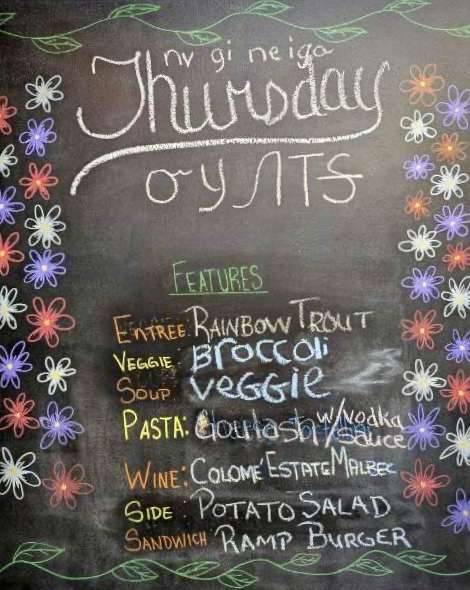 nv gi ne iga
Thursday
ᏅᎩᏁᎢᎦ
FEATURES
ENTREE: RAINBOW TROUT
VEGGIE: Broccoli
SOUP veggie
PASTA: Goulash w/vodka sauce
WINE: COLOMÉ ESTATE MALBEC
SIDE: POTATO SALAD
SANDWICH RAMP BURGER